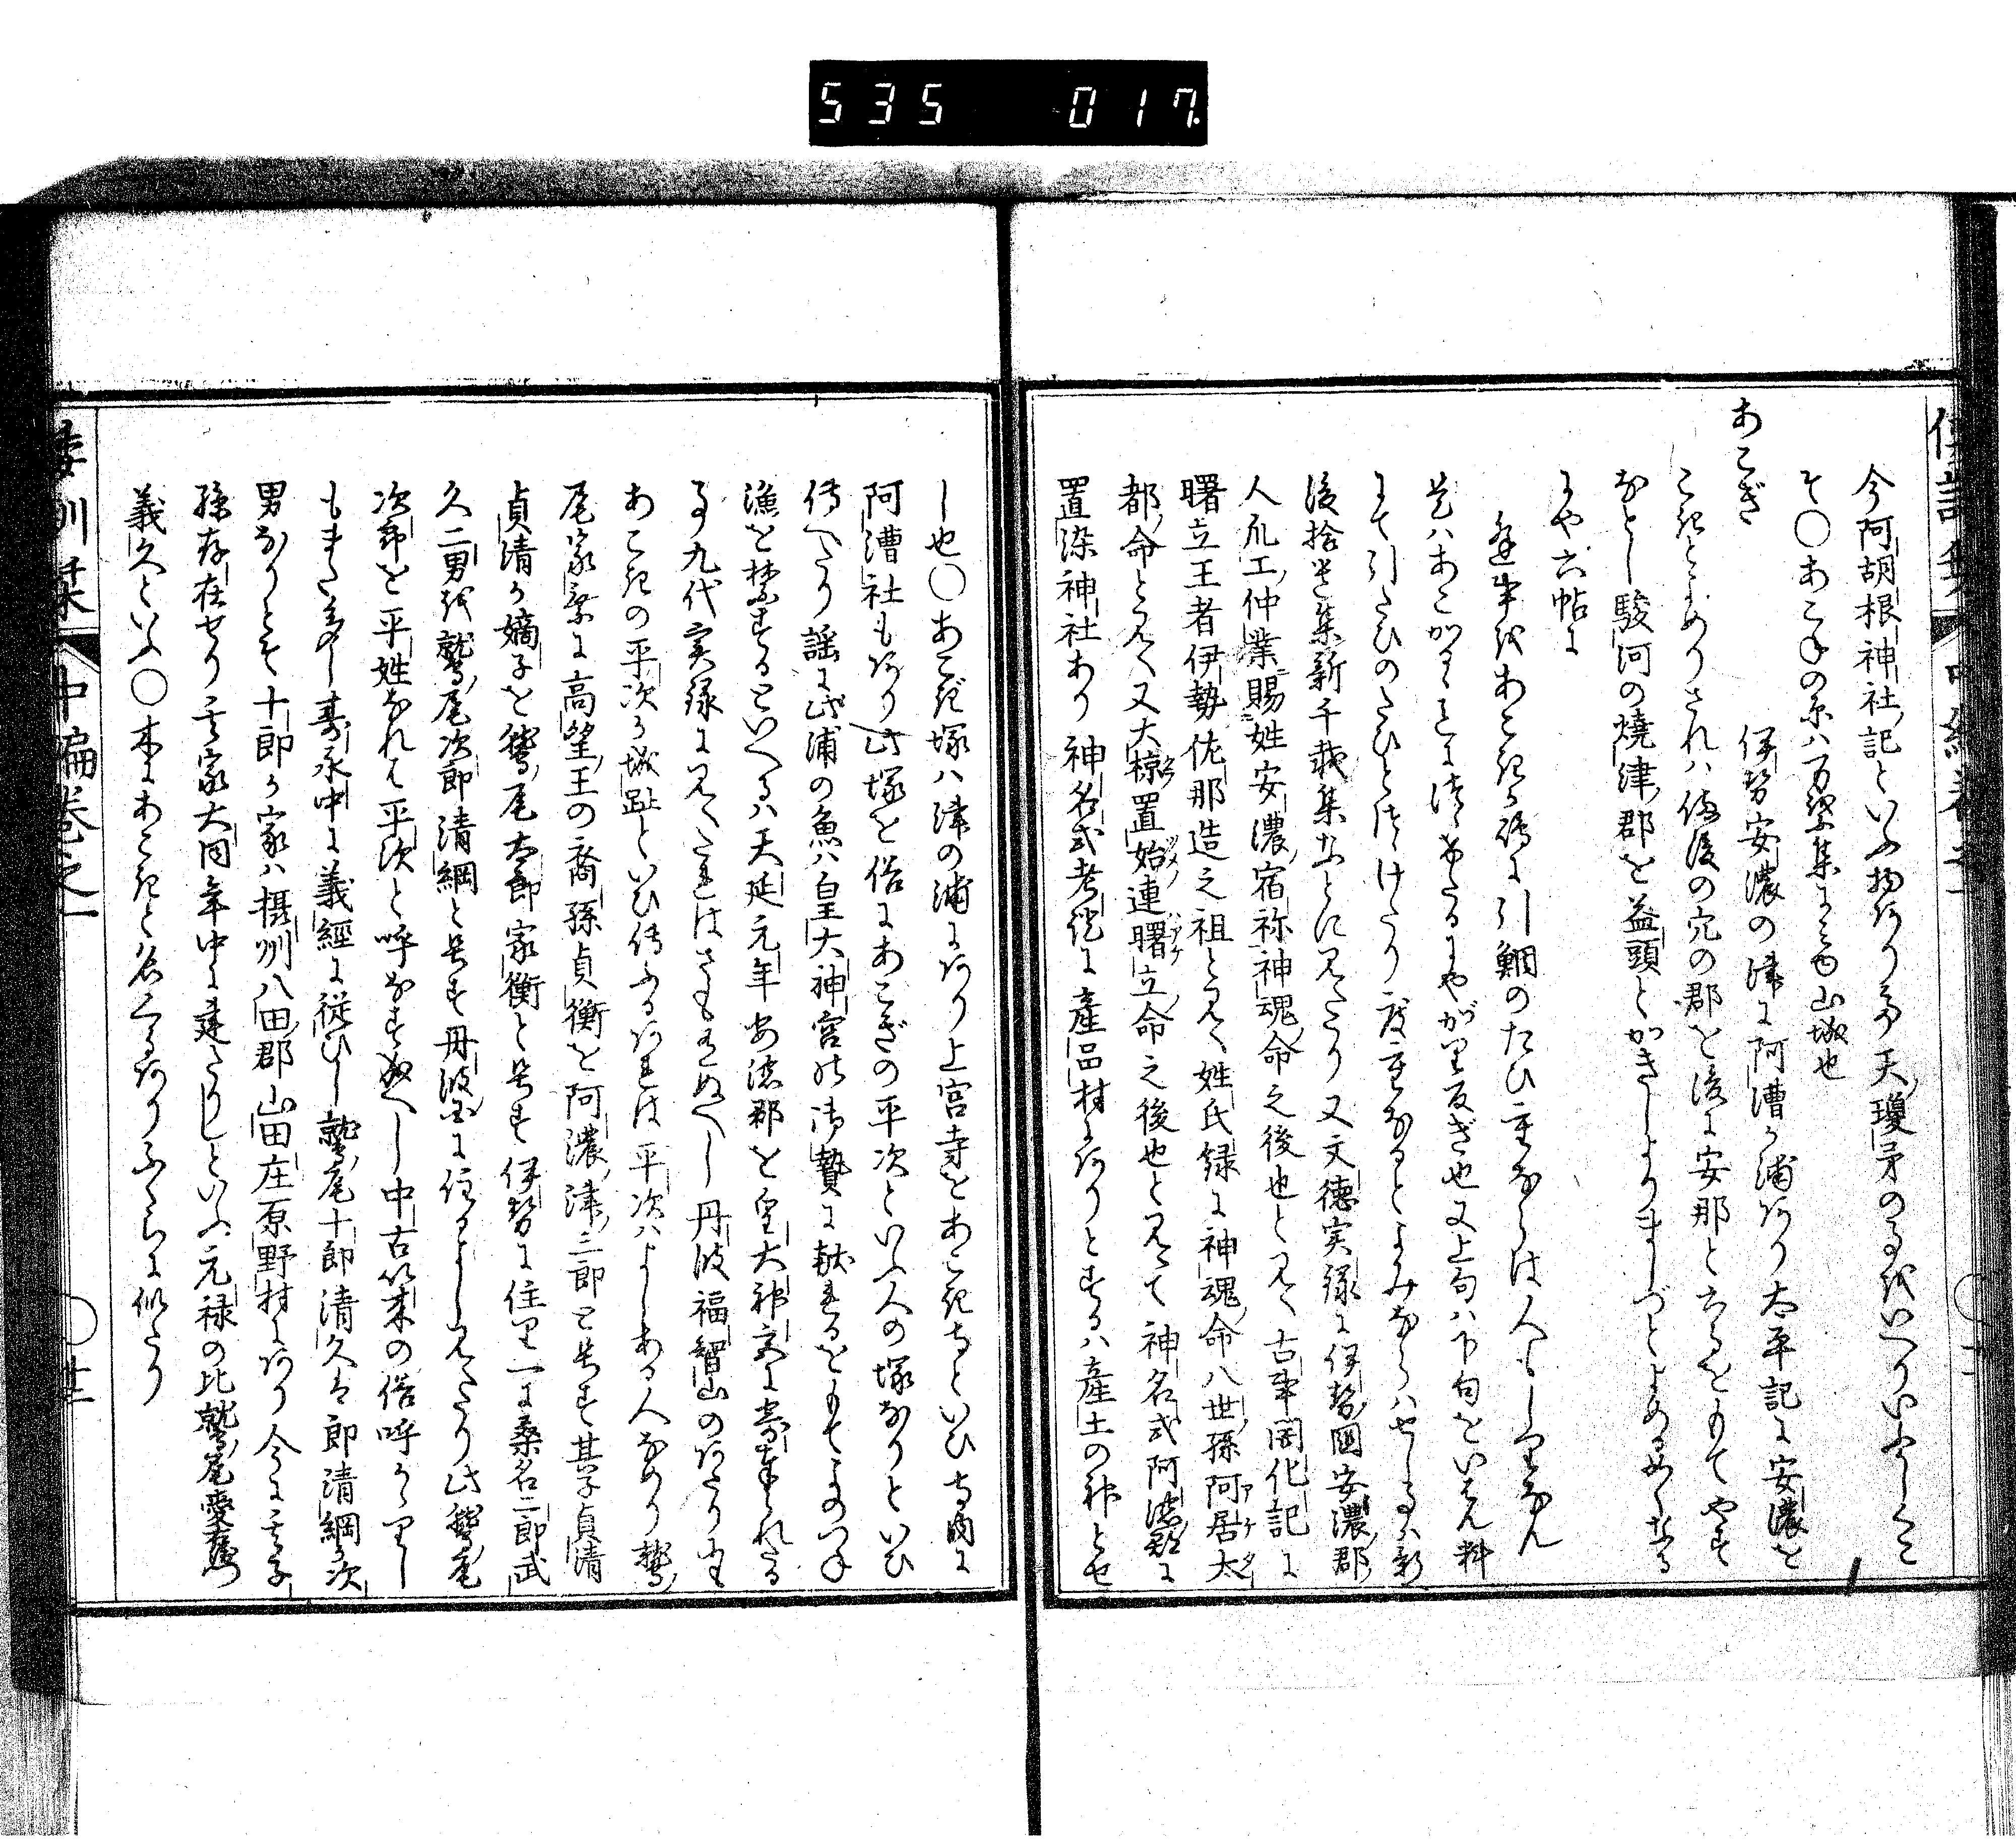 535 017
今阿胡根神社記といふ物あり多く天瓊矛の事をいへりいふかしこ
そ〇あこねの原ハ万葉集にみゆ山城也
あこぎ
伊勢安濃の津に阿漕か浦あり太平記に安濃を
こきとよめりされハ備後の穴の郡を後に安那とかけるをもてやす
なとし駿河の焼津郡を益頭とかきしよりましづとよめるかことくなる
にや六帖に
逢事をあこきか嶋に引鯛のたひ重ならは人もしりなん
是ハあこかるゝとにつゝけたるにやがり反ぎ也又上句ハ下句をいはん料
にて引たひのたひとつゝけたり度重なるとよみならハせし事ハ新
後拾遺集新千載集なとに見えたり又文徳実録に伊勢国安濃郡
人爪工仲業賜姓安濃宿祢神魂命之後也と見え古事国化記に
曙立王者伊勢佐那造之祖と見え姓氏録に神魂命八世孫阿居太
都命と見え又大椋置始連曙立命之後也と見えて神名式阿濃郡に
置染神社あり神名式考證に産品村にありとするハ産土の神とせ
し也〇あこぎ塚ハ津の浦にあり上宮寺をあこき寺といひ寺内に
阿漕社もあり此塚を俗にあこぎの平次といふ人の塚なりといひ
傳へたり謡に此浦の魚ハ皇大神宮の御贄に献るをもてよのつね
漁を禁するといへるハ天延元年安濃郡を皇大神宮に寄奉られたる
事九代実録に見えたれはさも有ぬへし丹波福智山のあたりにも
あこきの平次か城趾といひ傳ふるあれは平次ハよしある人なめり鷲
尾家系に高望王の裔孫貞衡を阿濃津三郎と号す其子貞清
貞清か嫡子を鷲尾太郎家衡と号す伊勢に住り一に桑名二郎武
久二男を鷲尾次郎清綱と号す丹波国に住るよし見えたり此鷲尾
次郎を平姓なれは平次と呼なすぬへし中古以来の俗呼かりし
もまた多し寿永中に義經に従ひし鷲尾十郎清久は郎清綱か次
男なりとそ十郎か家ハ摂州八田郡山田庄原野村にあり今に子
孫存在せり其家大同年中に建たりしといふ元禄の比鷲尾愛
義久といふ〇木にあこきと名くるありふくらに似たり
倭訓栞
中編巻之一